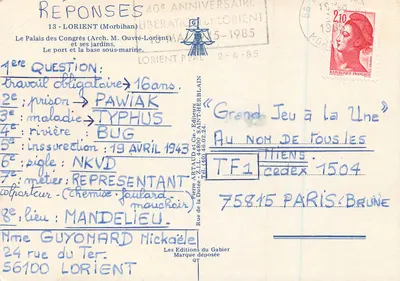 RÉPONSES
13 - LORIENT (Morbihan)
Le Palais des Congrès (Arch. M. Ouvré-Lorient)
et ses jardins.
Le port et la base sous-marine.
40e ANNIVERSAIRE
LORIENT
1985
LORIENT PPAL 2-4-85
2,10
1ère QUESTION:
travail obligatoire → 16ans.
2e: prison → PAWIAK
3e: maladie → TYPHUS
4e: rivière: BUG
5e: insurrection: 19 AVRIL 1943
6e: sigle: NKVD
7e: métier: REPRESENTANT
colporteur: (chemise-foulard
mouchoir)
8e: lieu: MANDELIEU.
Mme GUYOMARD Mickaèle
24 rue du Ter.
56100 LORIENT
"Grand Jeu à la Une"
AU NOM DE TOUS LES
MIENS.
TF1 cedex 1504
75815 PARIS-BRUNE
Les Editions du Gabier
Marque déposée